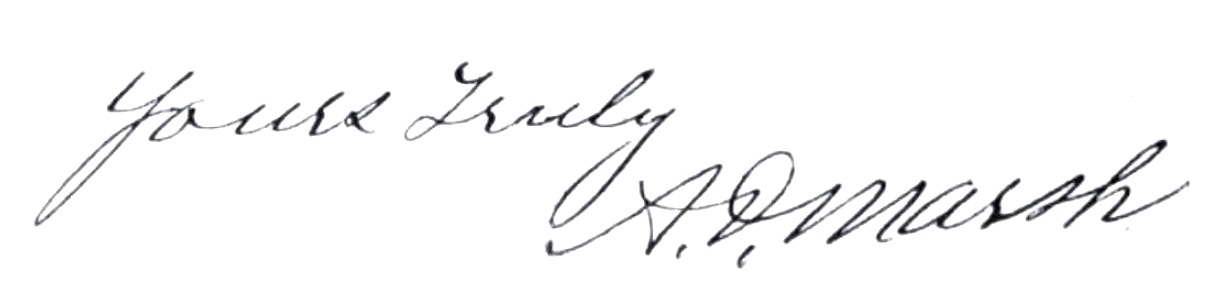 Yours Truly
A. D. Marsh